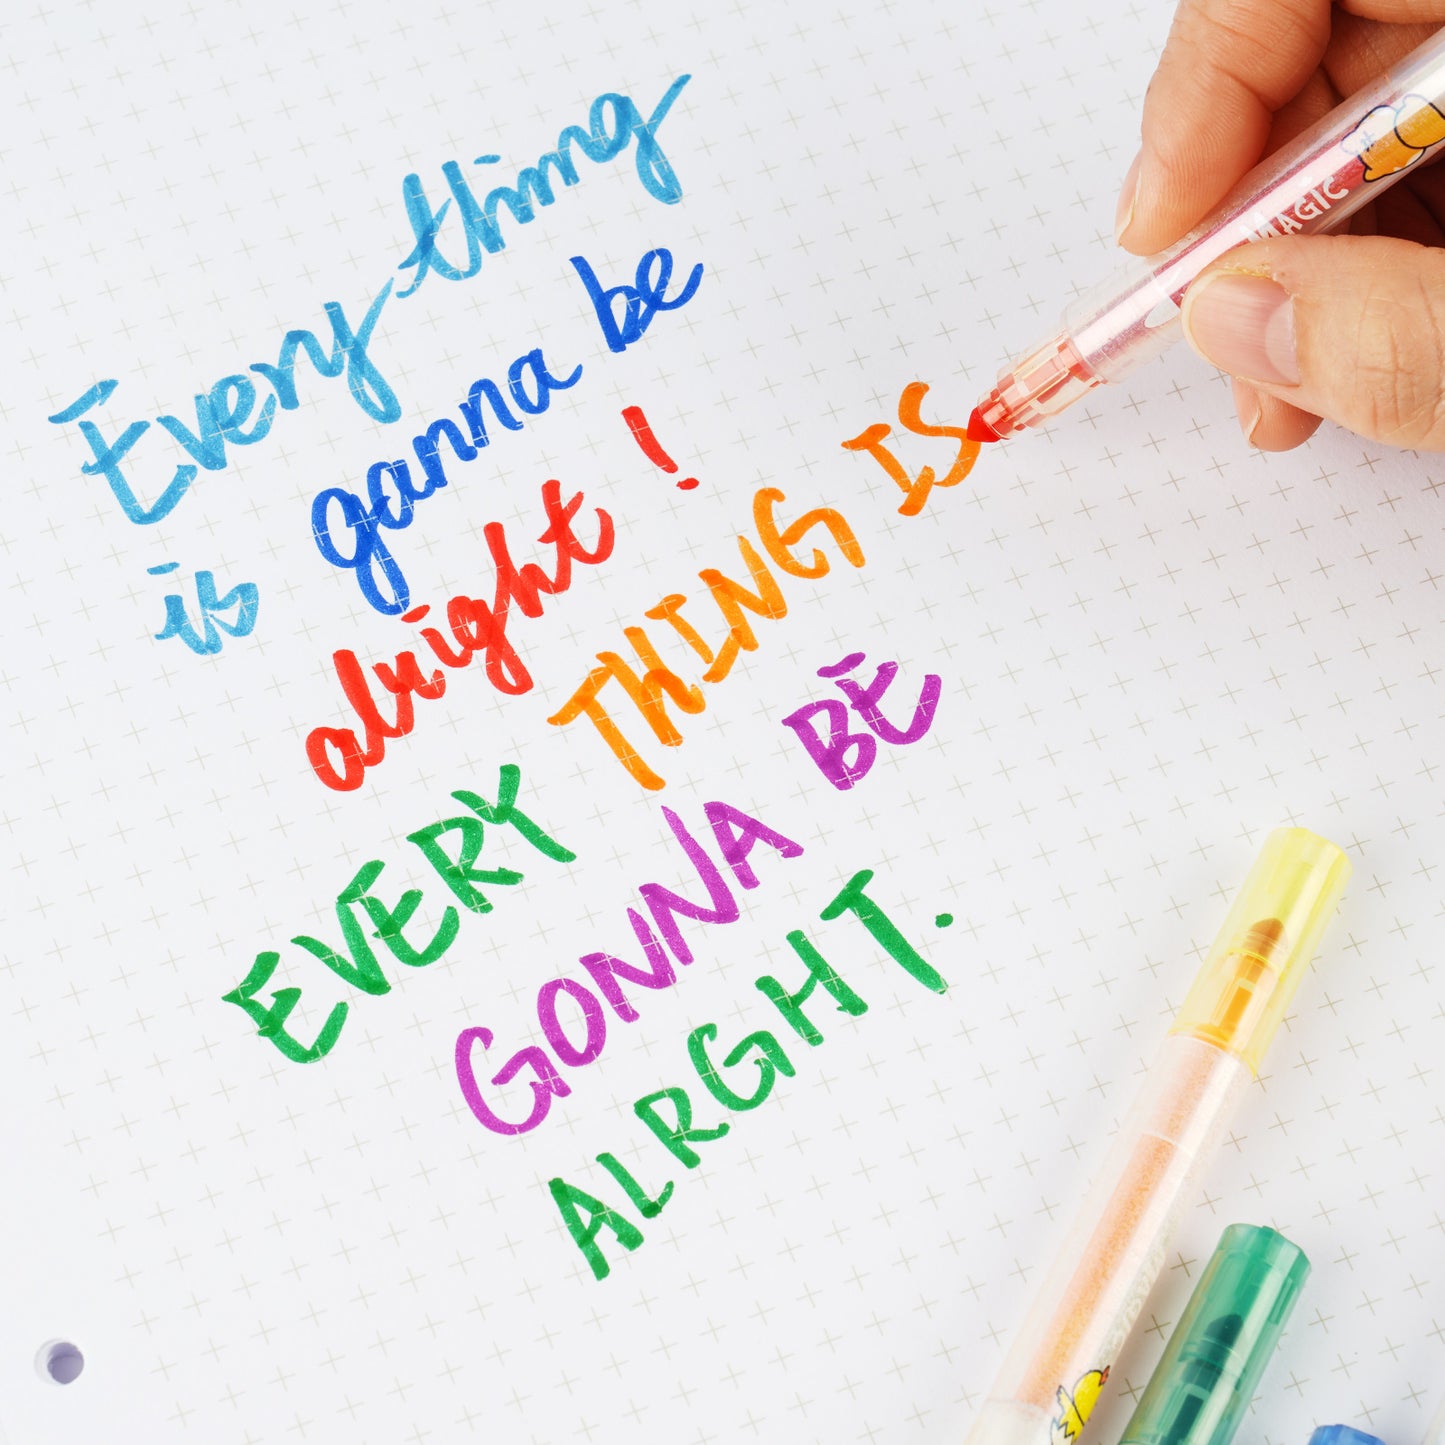 Every thing
is ganna be
alright !
EVERY THING IS
GONNA BE
ALRGHT.
MAGIC